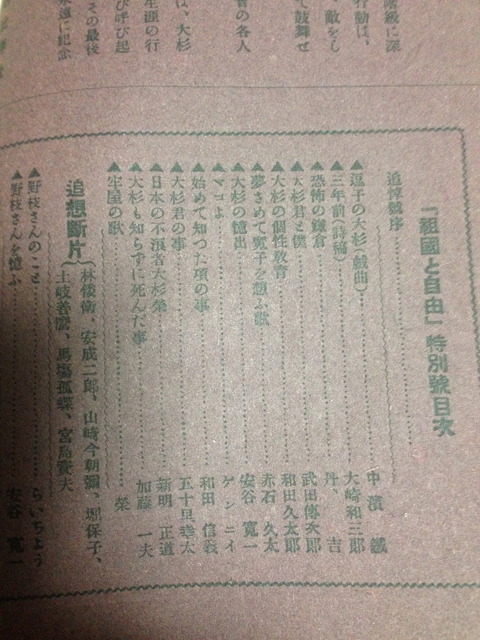 階級に深
行動は、
、敵をし
て鼓舞せ
者の各人
は、大杉
生涯の行
び呼び起
その最後
永遠に紀念
『祖國と自由』特別號目次
追悼號序……中濱 鐵
▲逗子の大杉（戯曲）……大崎和三郎
▲三年前（詩稿）……丹、 吉
▲恐怖の鎌倉……武田傳次郎
▲大杉君と僕……和田久太郎
▲大杉の個性敎育……赤石 久太
▲夢さめて寛子を想ふ歌……安谷 寛一
▲大杉の憶出……ゲンニイ
▲マコよ……和田 信義
▲始めて知つた頃の事……五十里幸太
▲大杉君の事……新明 正道
▲日本の不逞者大杉榮……加藤 一夫
▲大杉も知らずに死んだ事
▲牢屋の歌……榮
追想斷片｛林倭衛、安成二郎、山崎今朝彌、堀保子、
土岐善麿、馬塲孤蝶、宮島資夫
▲野枝さんのこと……らいちよう
▲野枝さんを憶ふ……安谷 寛一